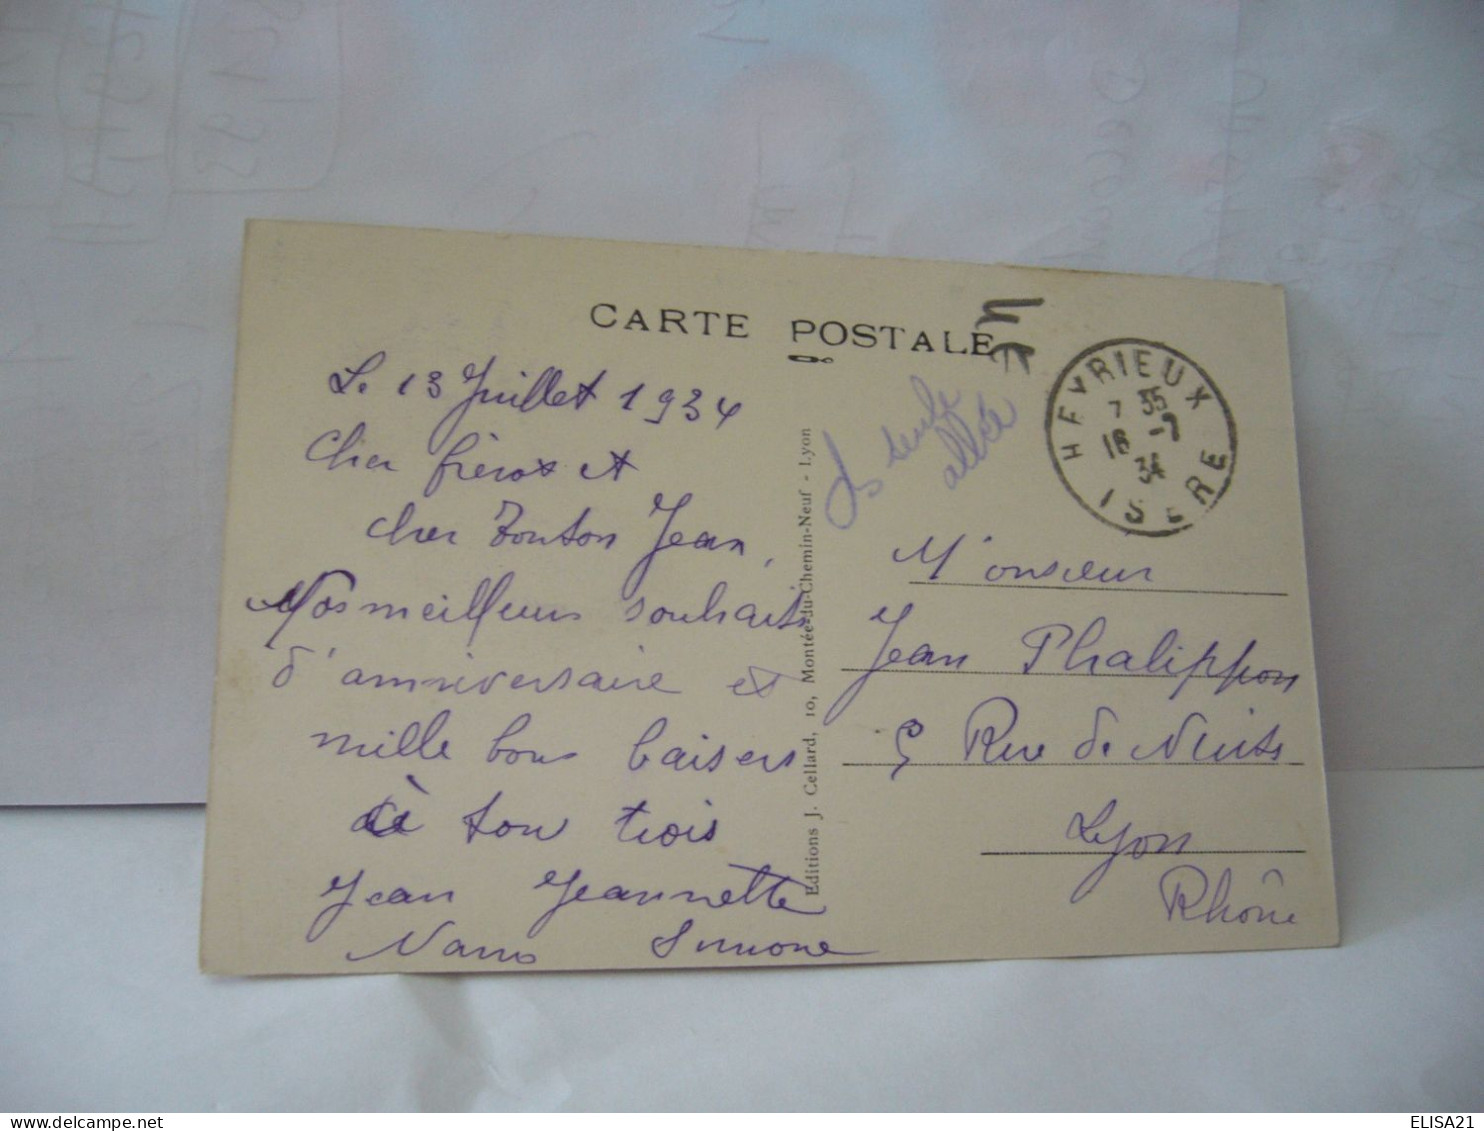 CARTE POSTALE
Le 13 Juillet 1934
Cher frérot et
cher Tonton Jean,
Nos meilleurs souhaits
d'anniversaire et
mille bons baisers
à tous trois
Jean Jeannette
Simone
Editions J. Cellard, 10, Montée-du-Chemin-Neuf - Lyon
HEYRIEUX
7 35
16 -7
34
ISERE
Monsieur
Jean Phalippon
5 Rue de Nuits
Lyon
Rhône
ELISA21